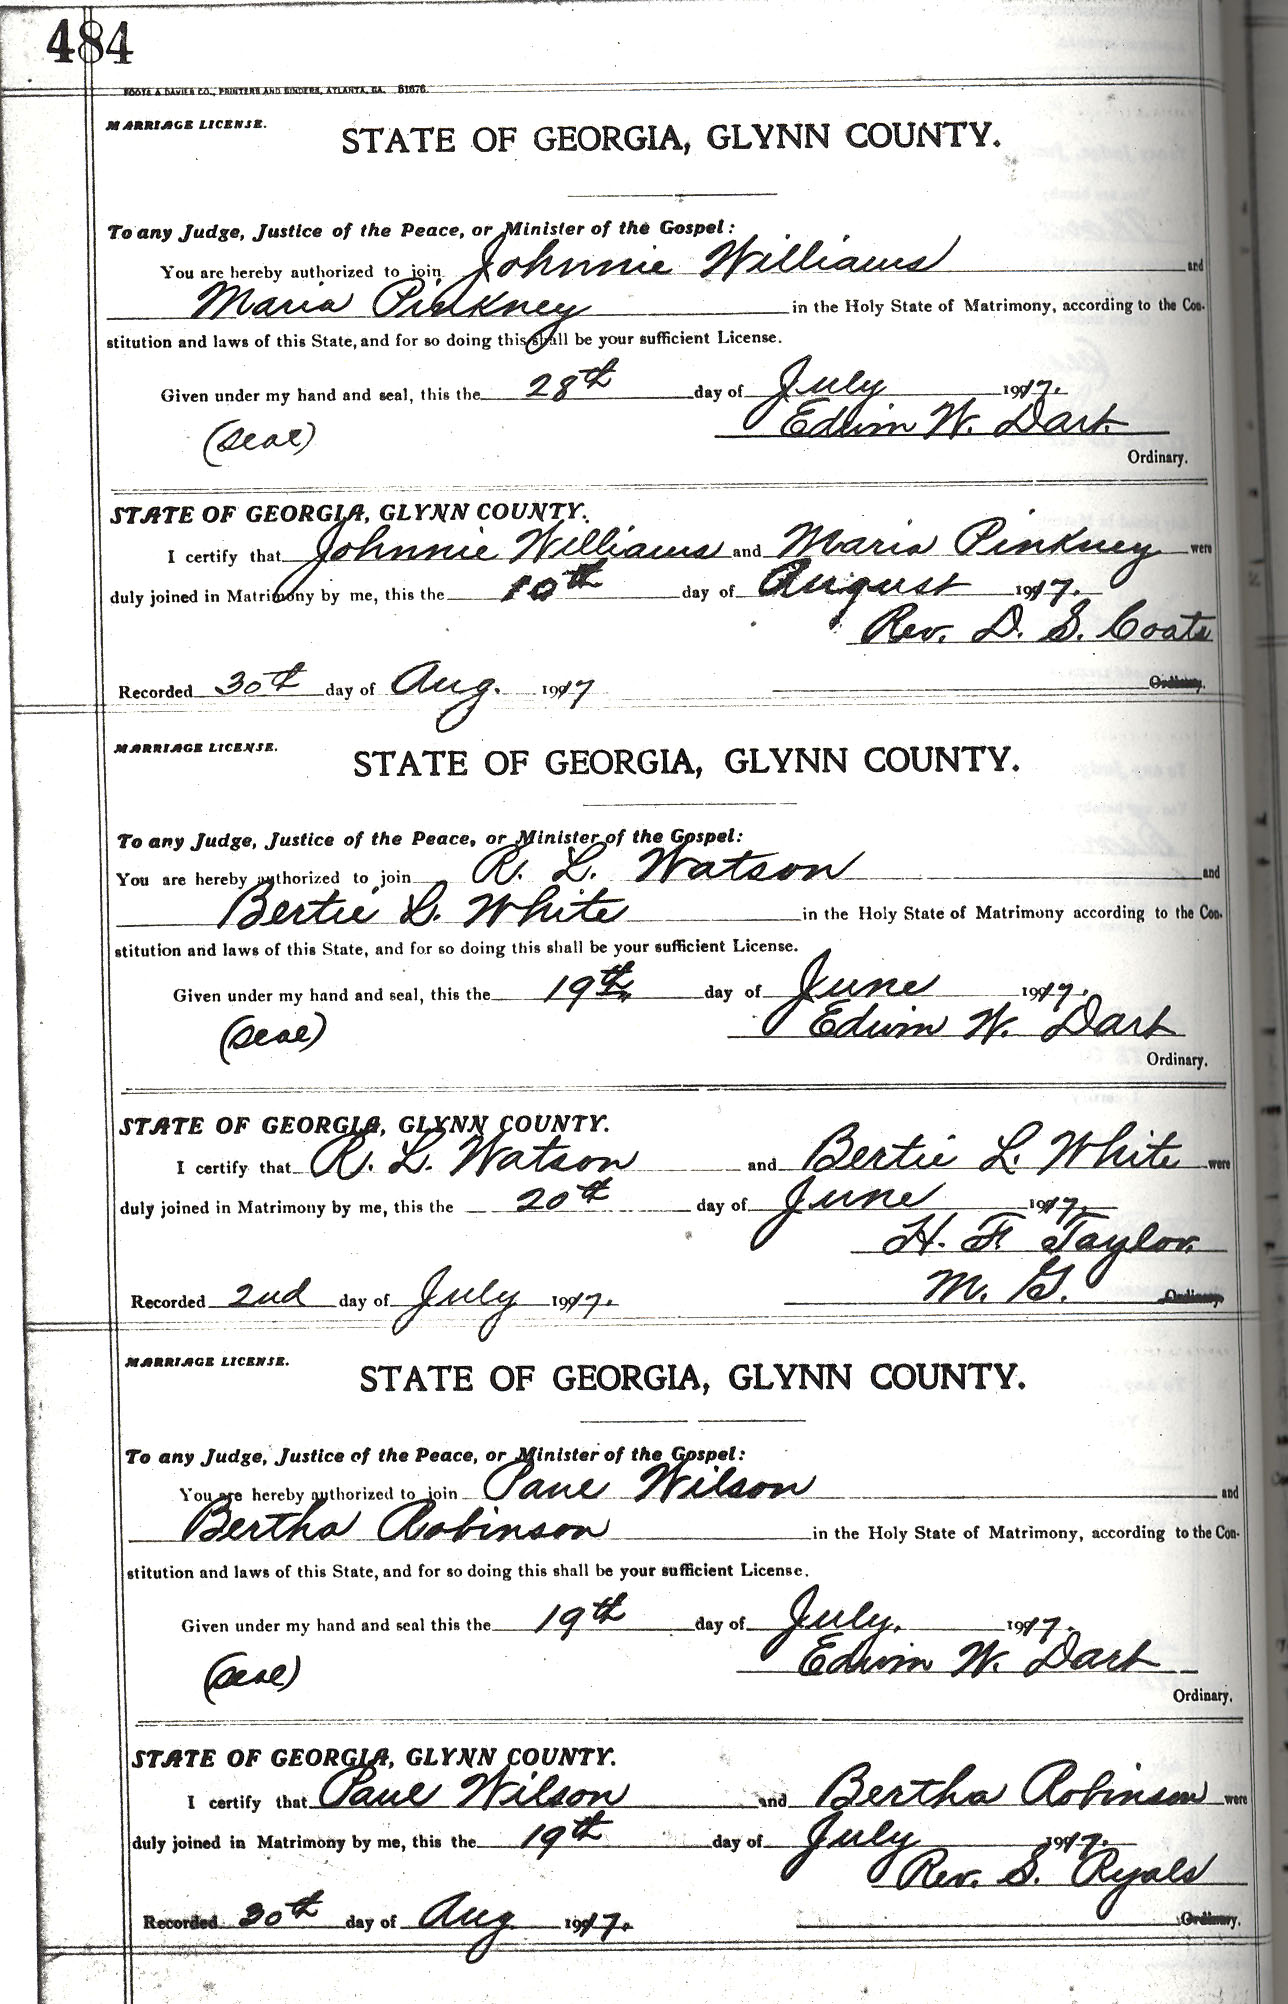 484
FOOTE & DAVIES CO., PRINTERS AND BINDERS, ATLANTA, GA. 51676
MARRIAGE LICENSE.
STATE OF GEORGIA, GLYNN COUNTY.
To any Judge, Justice of the Peace, or Minister of the Gospel:
You are hereby authorized to join Johnnie Williams and
Maria Pinkney in the Holy State of Matrimony, according to the Con-
stitution and laws of this State, and for so doing this shall be your sufficient License.
Given under my hand and seal, this the 28th day of July 1917.
(Seal) Edwin W. Dart
Ordinary.
STATE OF GEORGIA, GLYNN COUNTY.
I certify that Johnnie Williams and Maria Pinkney were
duly joined in Matrimony by me, this the 10th day of August 1917.
Rev. D. S. Coats
Recorded 30th day of Aug. 1917 Ordinary.
MARRIAGE LICENSE.
STATE OF GEORGIA, GLYNN COUNTY.
To any Judge, Justice of the Peace, or Minister of the Gospel:
You are hereby authorized to join R. L. Watson and
Bertie L. White in the Holy State of Matrimony according to the Con-
stitution and laws of this State, and for so doing this shall be your sufficient License.
Given under my hand and seal, this the 19th. day of June 1917.
(Seal) Edwin W. Dart
Ordinary.
STATE OF GEORGIA, GLYNN COUNTY.
I certify that R. L. Watson and Bertie L. White were
duly joined in Matrimony by me, this the 20th day of June 1917.
H. F. Taylor.
Recorded 2nd day of July 1917. M. G. Ordinary
MARRIAGE LICENSE.
STATE OF GEORGIA, GLYNN COUNTY.
To any Judge, Justice of the Peace, or Minister of the Gospel:
You are hereby authorized to join Paul Wilson and
Bertha Robinson in the Holy State of Matrimony, according to the Con-
stitution and laws of this State, and for so doing this shall be your sufficient License.
Given under my hand and seal this the 19th day of July. 1917.
(Seal) Edwin W. Dart
Ordinary.
STATE OF GEORGIA, GLYNN COUNTY.
I certify that Paul Wilson and Bertha Robinson were
duly joined in Matrimony by me, this the 19th day of July 1917.
Rev. S. Ryals
Recorded 30th day of Aug 1917. Ordinary.